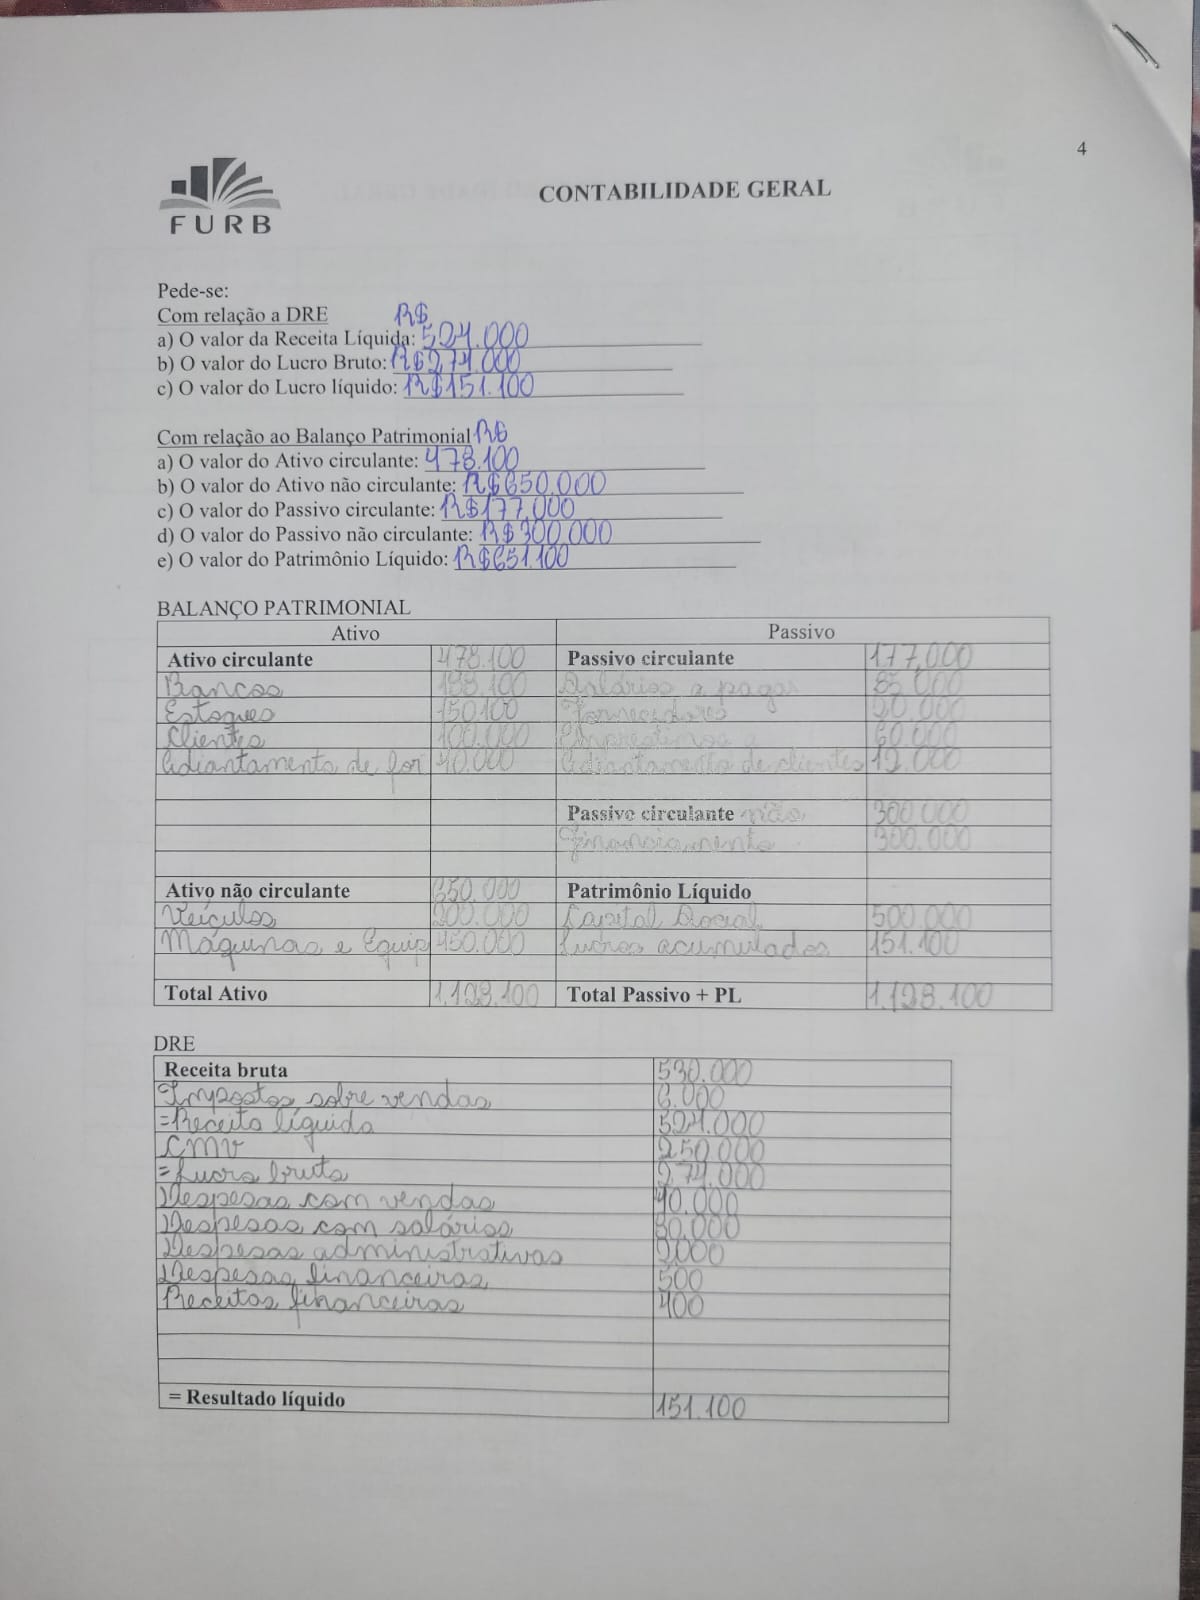 4
FURB
CONTABILIDADE GERAL
Pede-se:
Com relação a DRE R$
a) O valor da Receita Líquida: 524.000
b) O valor do Lucro Bruto: R$274.000
c) O valor do Lucro líquido: R$151.100
Com relação ao Balanço Patrimonial R$
a) O valor do Ativo circulante: 478.100
b) O valor do Ativo não circulante: R$650.000
c) O valor do Passivo circulante: R$177.000
d) O valor do Passivo não circulante: R$300.000
e) O valor do Patrimônio Líquido: R$651.100
BALANÇO PATRIMONIAL
Ativo Passivo
Ativo circulante 478.100 Passivo circulante 177.000
Bancos Salários a pagar 85.000
Estoques 150.100 Fornecedores 20.000
Clientes 100.000 Empréstimos 60.000
Adiantamento de for 40.000 Adiantamento de clientes 12.000
Passivo circulante não 300.000
Financiamento 300.000
Ativo não circulante 650.000 Patrimônio Líquido
Veículos 200.000 Capital Social 500.000
Máquinas e Equip 450.000 Lucros acumulados 151.100
Total Ativo 1.128.100 Total Passivo + PL 1.128.100
DRE
Receita bruta 530.000
Impostos sobre vendas 6.000
=Receita líquida 524.000
CMV 250.000
= Lucro bruto 274.000
Despesas com vendas 40.000
Despesas com salários 80.000
Despesas administrativas
Despesas financeiras 500
Receitas financeiras 400
= Resultado líquido 151.100